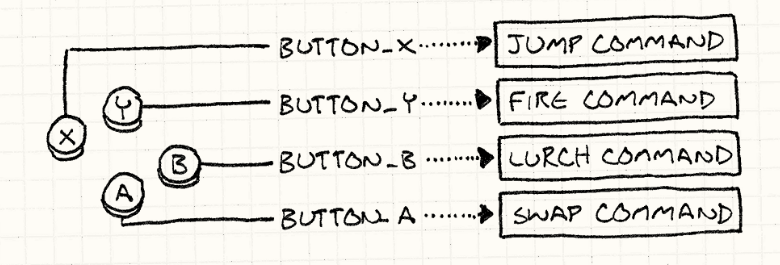 X
BUTTON_X
JUMP COMMAND
Y
BUTTON_Y
FIRE COMMAND
B
BUTTON_B
LURCH COMMAND
A
BUTTON_A
SWAP COMMAND